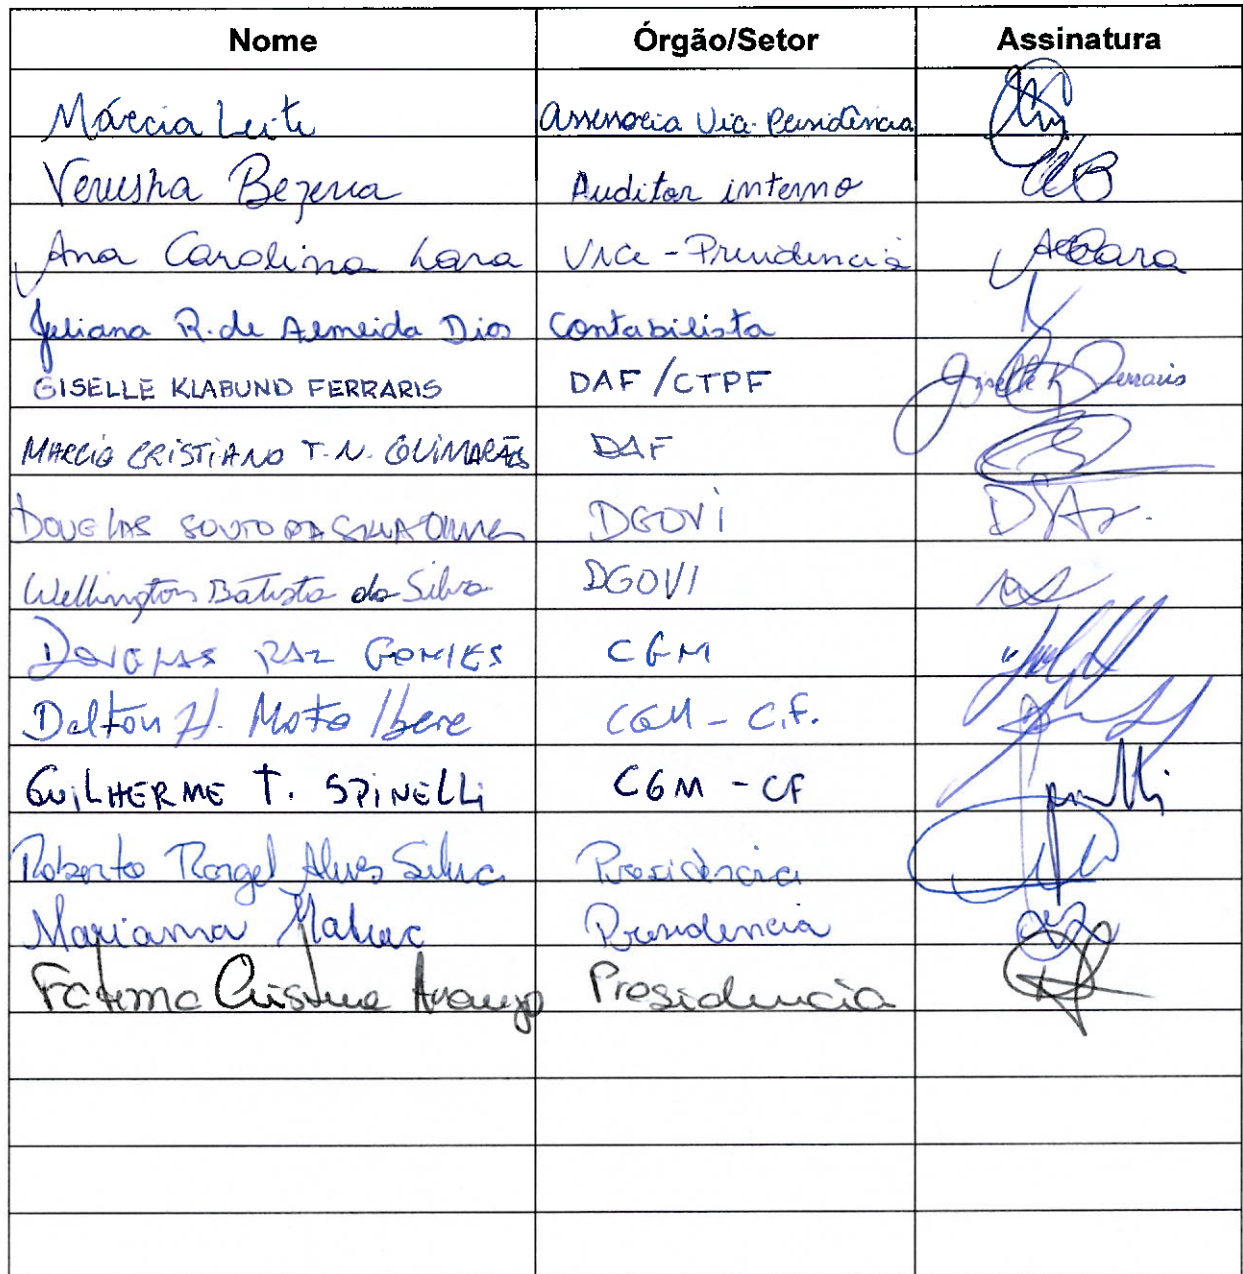 Nome Órgão/Setor Assinatura
Márcia Leite Assessoria Vice-Presidência
Verusha Bezerra Auditor interno
Ana Carolina Lara Vice-Presidencia ACLara
Juliana R. de Almeida Dias Contabilista
GISELLE KLABUND FERRARIS DAF/CTPF Giselle K Ferraris
MARCIO CRISTIANO T. N. GUIMARÃES DAF
DOUGLAS SOUTO DA SILVA DGOVI
Wellington Batista da Silva DGOVI
DOUGLAS PAZ GOMES CGM
Dalton H. Moto Ibere CGM - C.F.
GUILHERME T. SPINELLI CGM - CF
Roberto Rangel Alves Silva Presidência
Mariana Presidencia
Fatima Cristina Araujo Presidencia